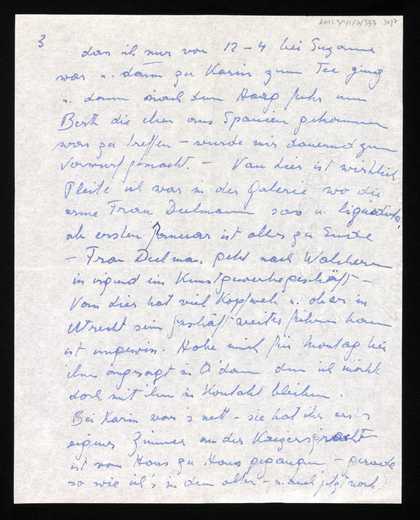 3
das ich nur von 12-4 bei Suzanne
war u. dann zu Karin zum Tee ging
u. dann nach dem Haag fuhr um
Beth die eben aus Spanien gekommen
war zu treffen - wurde mir dauernd zum
Vorwurf gemacht. - Van Lier ist wirklich
Pleite ich war in der Galerie wo die
arme Frau Dulmann sass u. liquidiert,
ab ersten Januar ist alles zu Ende
- Frau Dulman geht nach Walcheren
in irgend ein Kunstgewerbegeschäft -
Van Lier hat viel Kopfweh u. ob er in
Utrecht sein Geschäft weiter führen kann
ist ungewiss. Habe mich für Montag bei
ihm angesagt in A'dam denn ich möcht
doch mit ihm in Kontakt bleiben.
Bei Karin war's nett - sie hat ihr
eigenes Zimmer an der Keizersgracht
ist von Haus zu Haus gegangen - gerade
so wie ich's in dem alter -